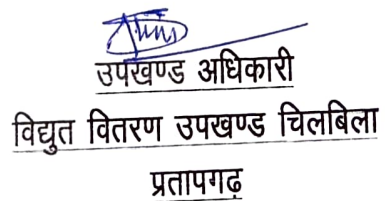 उपखण्ड अधिकारी
विद्युत वितरण उपखण्ड चिलबिला
प्रतापगढ़